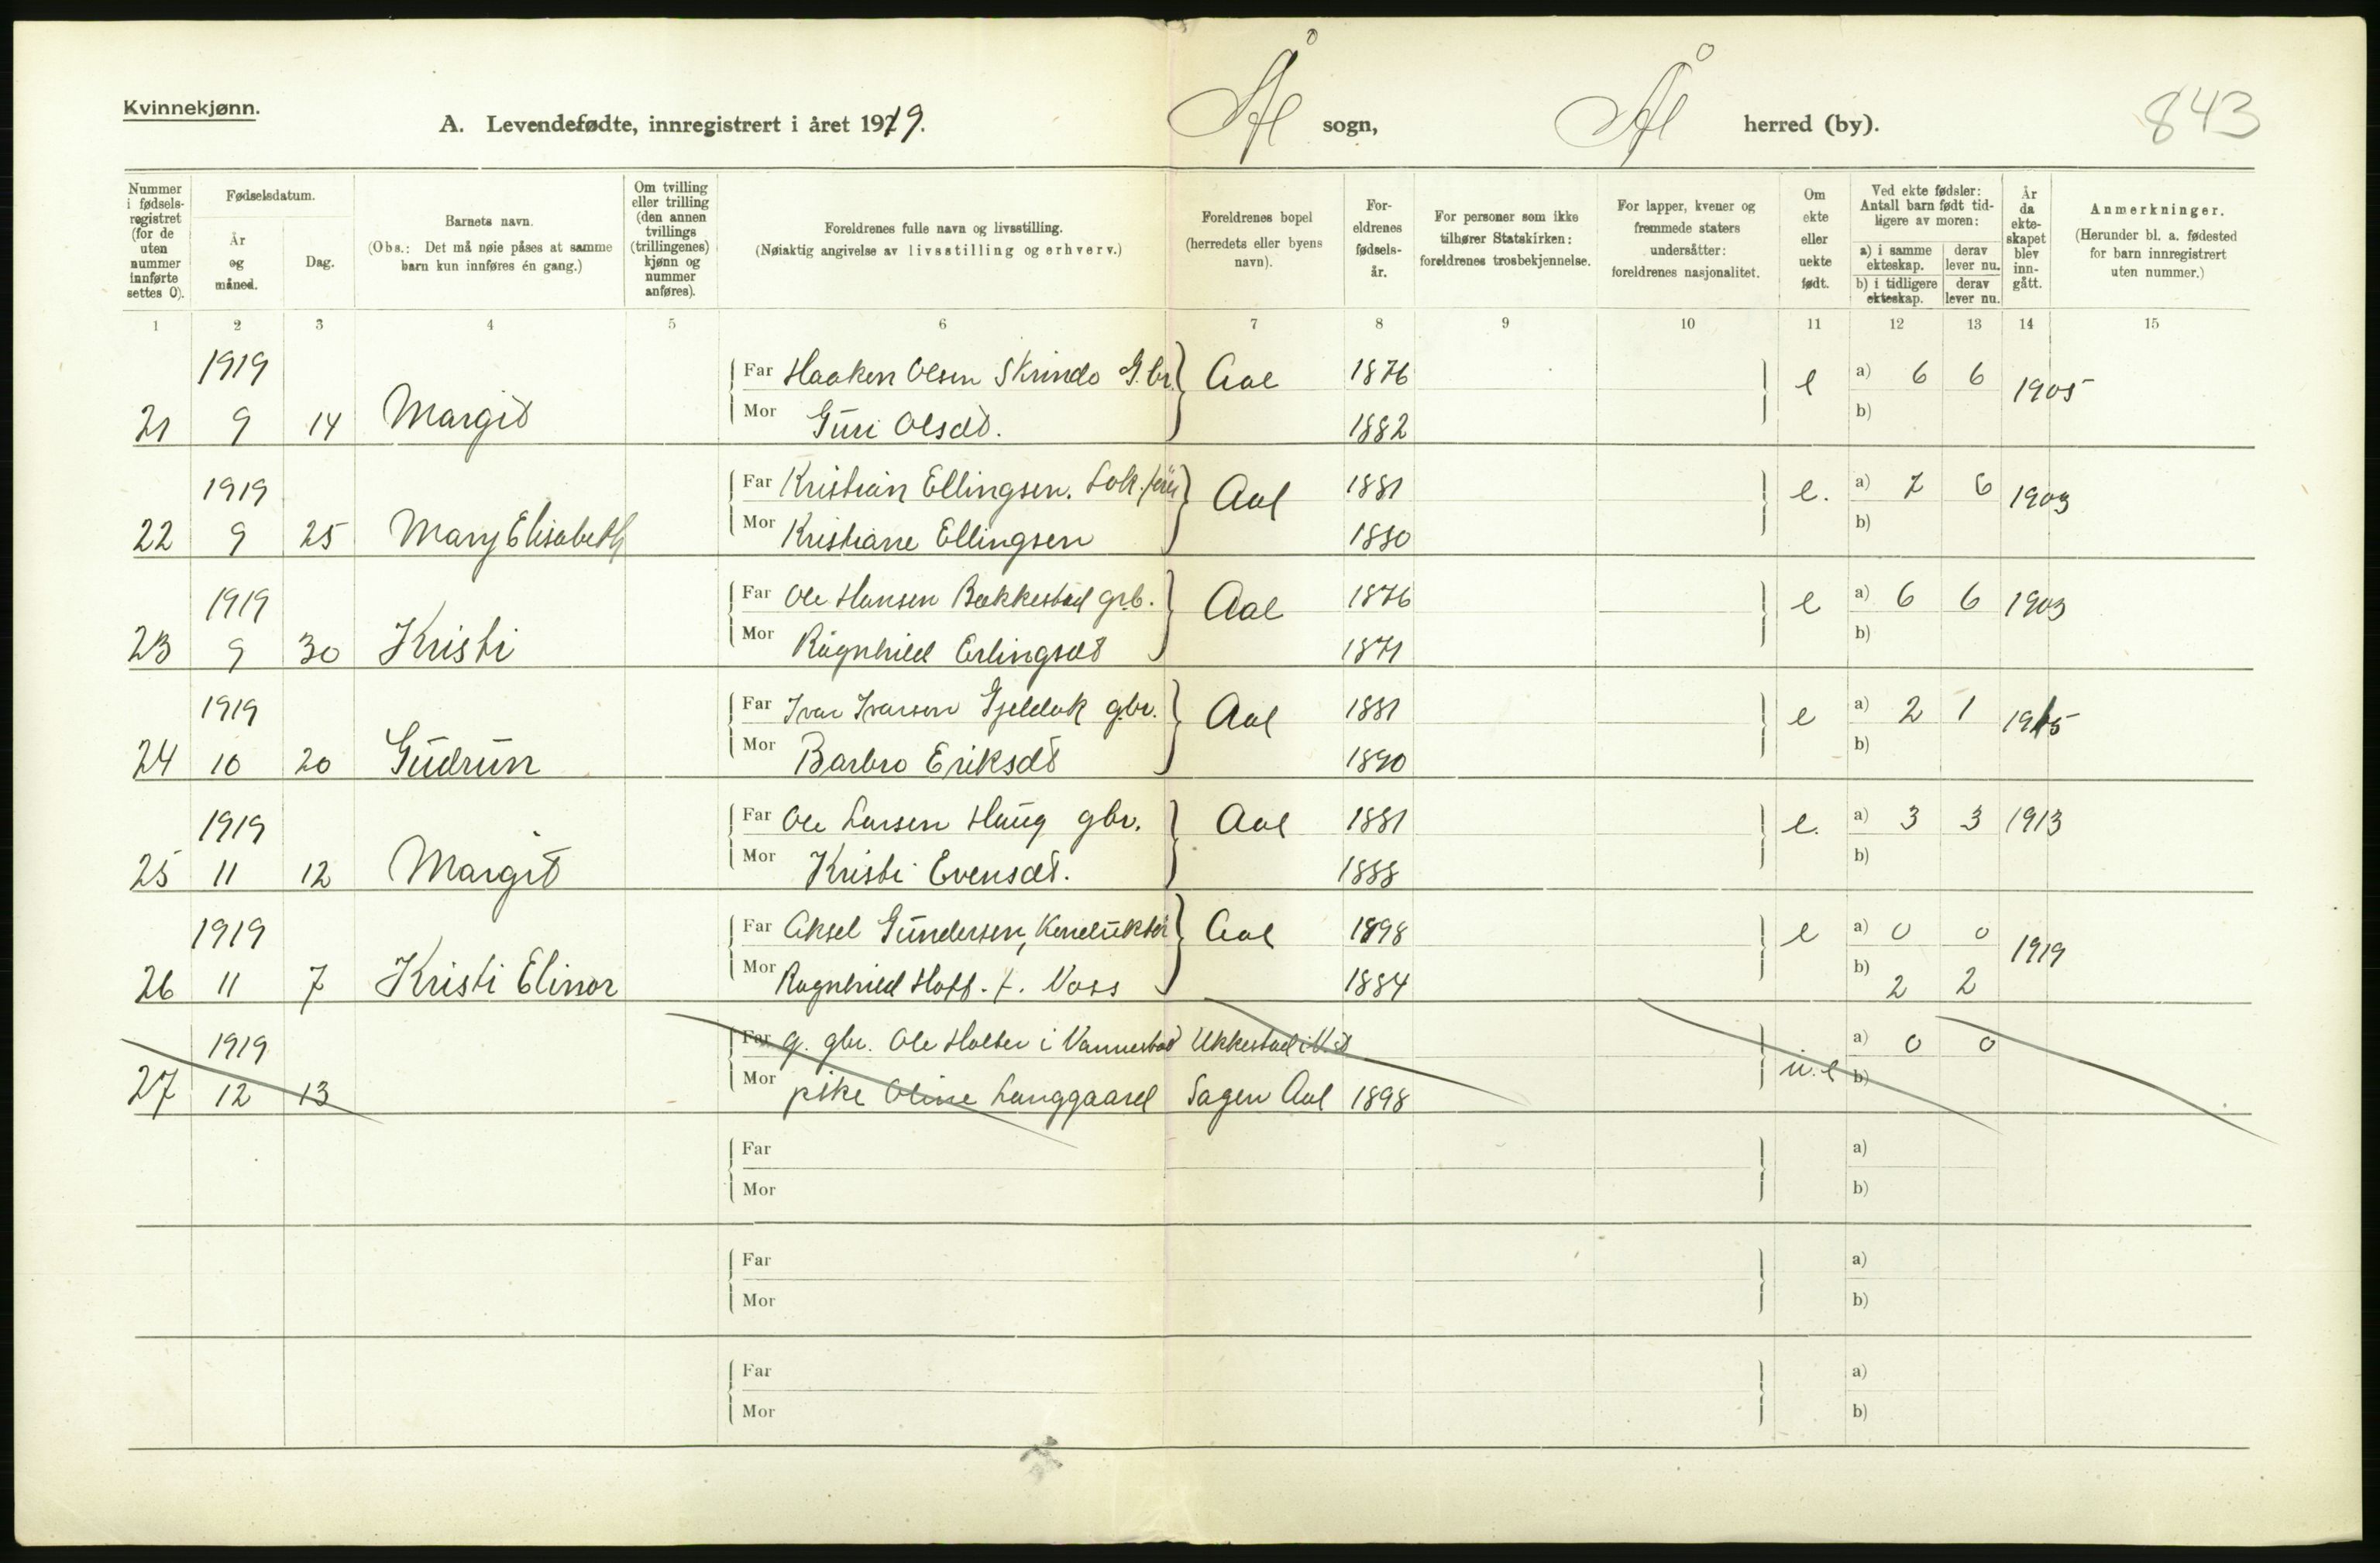 Kvinnekjønn.
A. Levendefødte, innregistrert i året 1919.
Ål sogn, Ål herred (by).
843
Nummer i fødsels-registret (for de uten nummer innførte settes 0).
Fødselsdatum.
År og måned.
Dag.
Barnets navn.
(Obs.: Det må nøie påses at samme barn kun innføres én gang.)
Om tvilling eller trilling (den annen tvillings (trillingenes) kjønn og nummer anføres).
Foreldrenes fulle navn og livsstilling.
(Nøiaktig angivelse av livsstilling og erhverv.)
Foreldrenes bopel (herredets eller byens navn).
For-eldrenes fødsels-år.
For personer som ikke tilhører Statskirken: foreldrenes trosbekjennelse.
For lapper, kvener og fremmede staters undersåtter: foreldrenes nasjonalitet.
Om ekte eller uekte født.
Ved ekte fødsler: Antall barn født tid-ligere av moren:
a) i samme ekteskap.
derav lever nu.
b) i tidligere ekteskap.
derav lever nu.
År da ekte-skapet blev inn-gått.
Anmerkninger.
(Herunder bl. a. fødested for barn innregistrert uten nummer.)
1 2 3 4 5 6 7 8 9 10 11 12 13 14 15
1919 Far Haaken Olsen Skrindo G.br. Aal 1876 e a) 6 6 1905
21 9 14 Margit Mor Guri Olsdt. 1882 b)
1919 Far Kristian Ellingsen. Lok. Aal 1881 e. a) 7 6 1903
22 9 25 Mary Elisabeth Mor Kristiane Ellingsen 1880 b)
1919 Far Ole Hansen Bakkestad grb. Aal 1876 e a) 6 6 1903
23 9 30 Kristi Mor Ragnhild Erlingsdt 1871 b)
1919 Far Ivar Ivarsen gbr. Aal 1881 e a) 2 1 1915
24 10 20 Gudrun Mor Barbro Eriksdt 1890 b)
1919 Far Ole Larsen Haug gbr. Aal 1881 e. a) 3 3 1913
25 11 12 Margit Mor Kristi Evensdt. 1888 b)
1919 Far Aksel Gundersen, Konduktør Aal 1898 e a) 0 0 1919
26 11 7 Kristi Elinor Mor Ragnhild Hoff. f. Voss 1884 b) 2 2
1919 Far g. gbr. Ole Halter i a) 0 0
27 12 13 Mor pike Oline Langgaard Sagen Aal 1898 u.e b)
Far a)
Mor b)
Far a)
Mor b)
Far a)
Mor b)